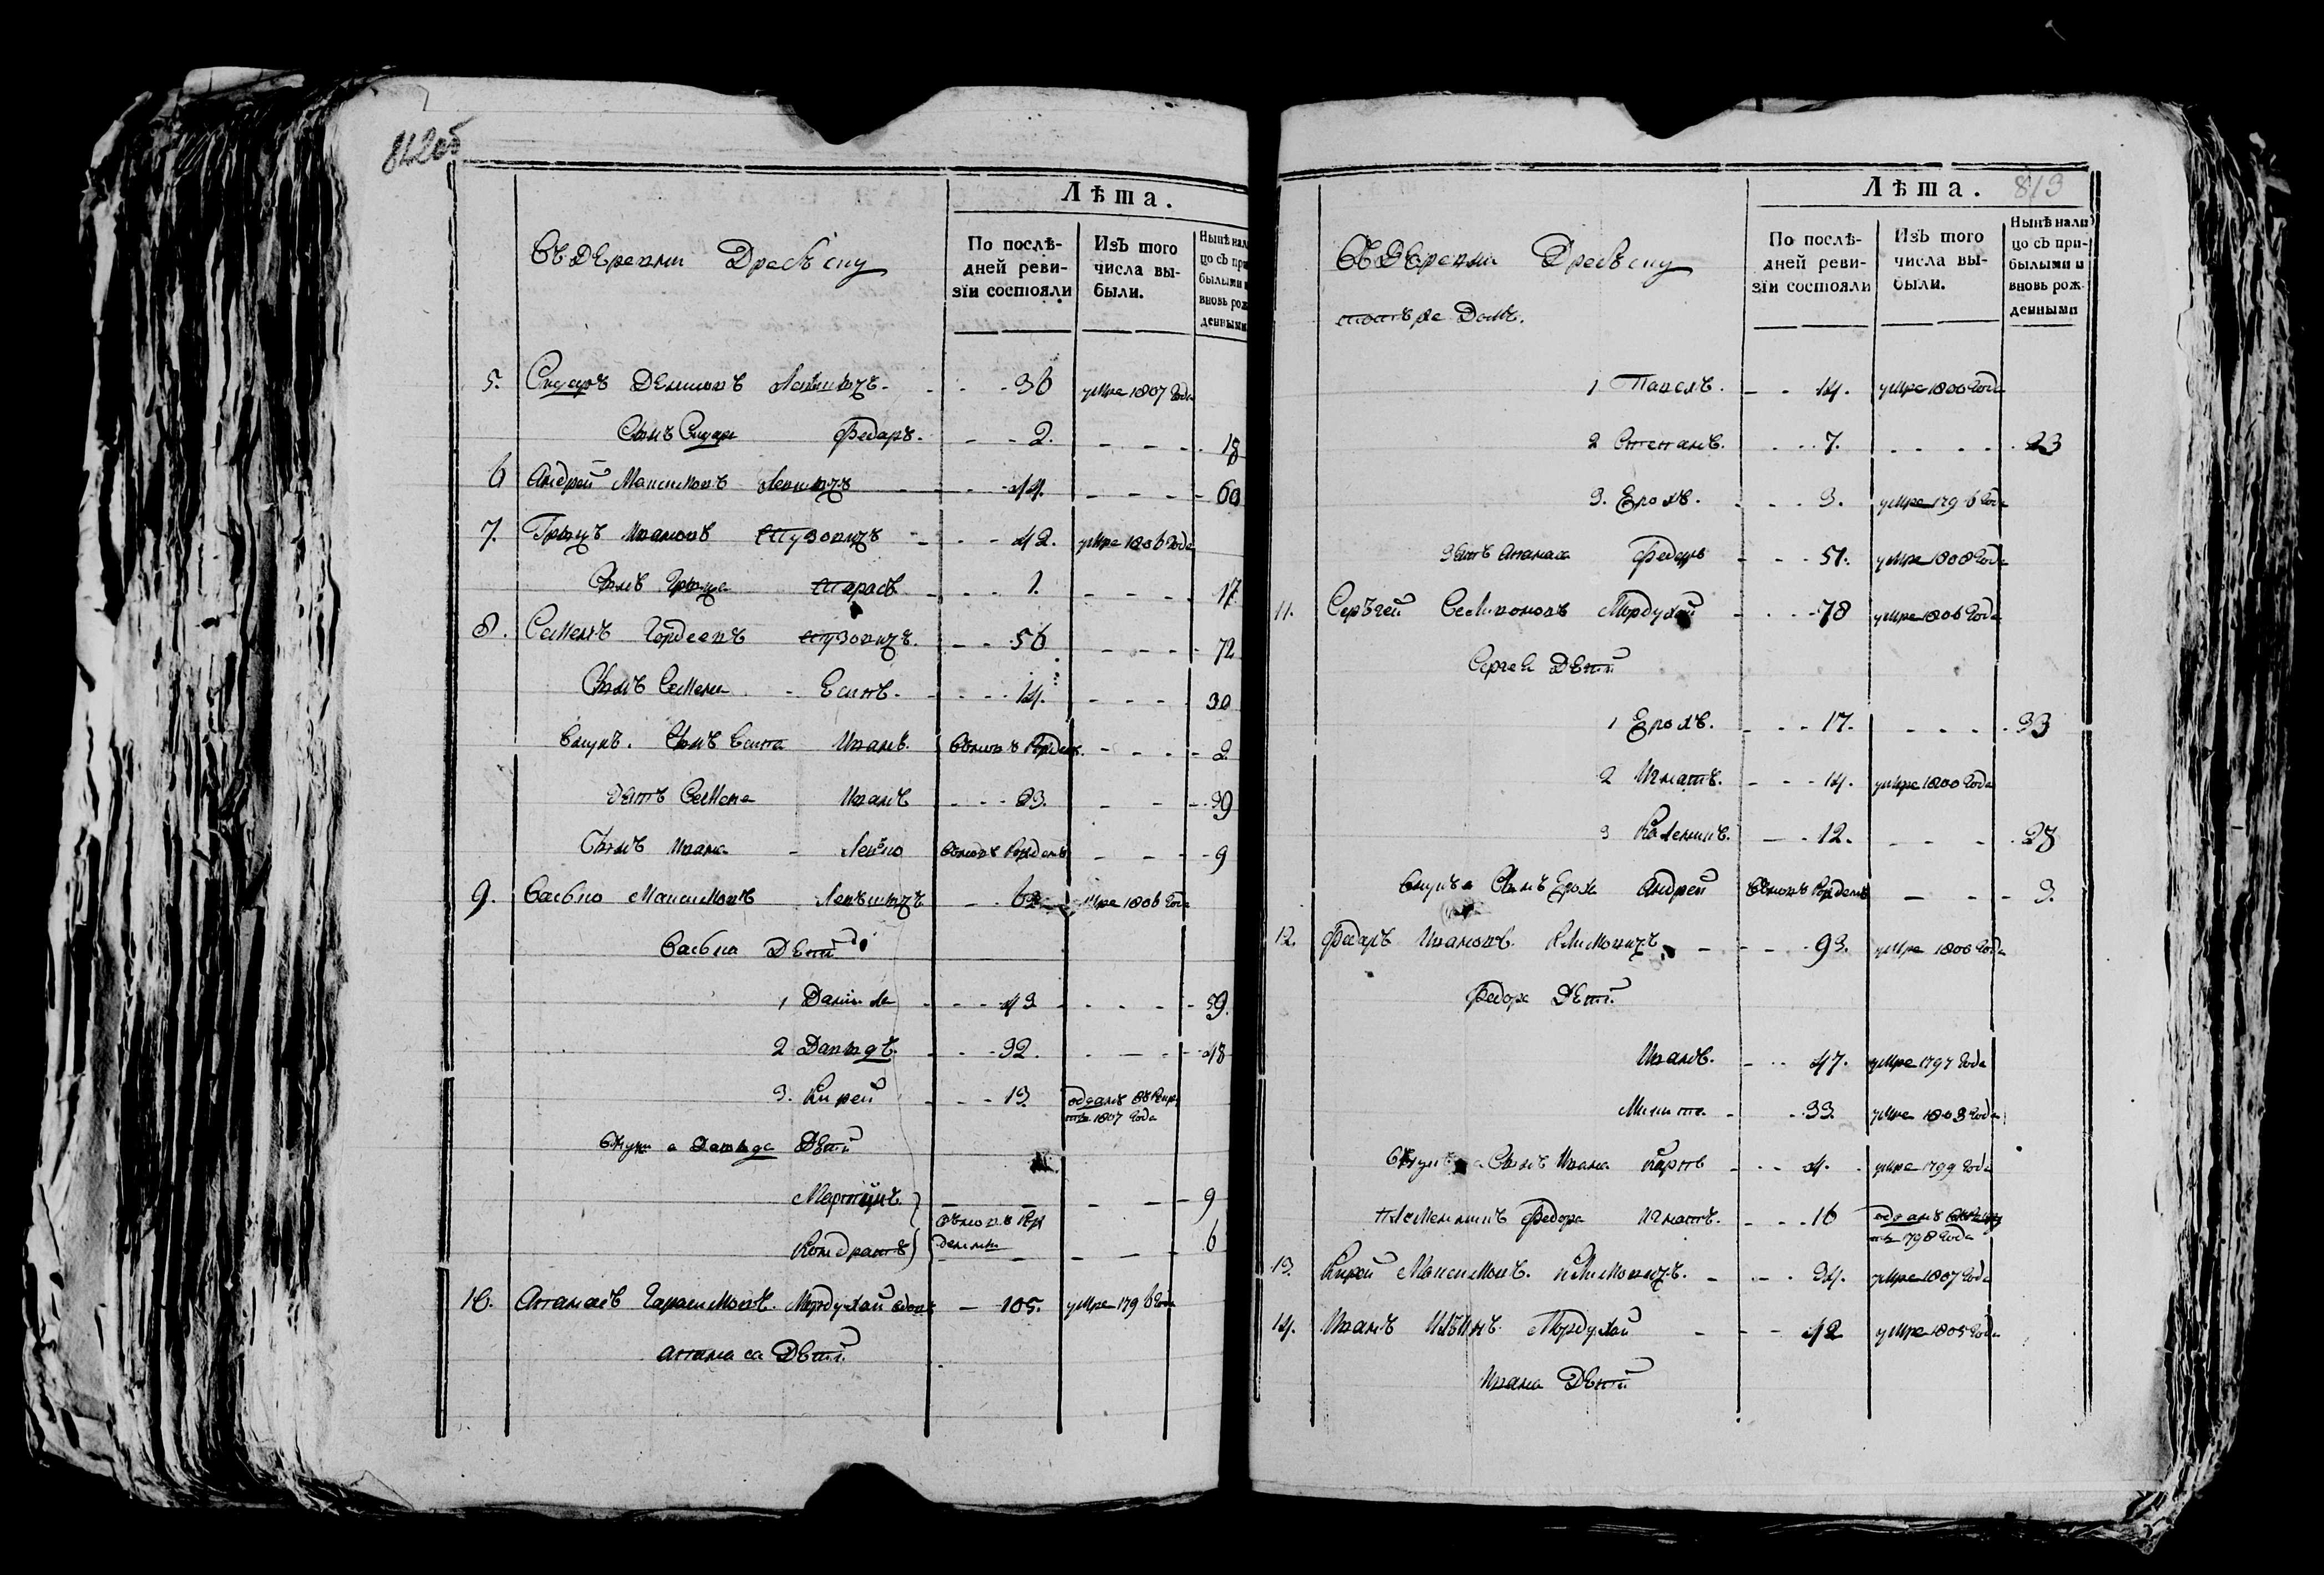 842об
Лѣта.
Въ деревни Древску
По послѣ-
дней реви-
зіи состояли
Изъ того
числа вы-
были.
Нынѣ нали
цо съ при
былыми и
вновь рож
денными
5. Сидоръ Деминовъ - - 36 умре 1807 года
Сынъ Сидара Федаръ. - - 2. - - - 18
6 Андрей Максимовъ - - 44. - - - 60
7. Грыцъ Ивановъ - - 42. умре 1806 года
Сынъ Грыца Тарасъ - - 1. - - - 17
8. Семенъ Гордеевъ - - 56 - - - 72
Сынъ Семена - Есипъ. - - 14. - - - 30
Внукъ. Сынъ Есипа Иванъ. Вновь Рожденъ - - - 2
Зять Семена Иванъ - - 23. - - - 39
Сынъ Ивана - Левко Вновь Рожденъ - - - 9
9. Васько Максимовъ - - 63 умре 1806 года
Васька Дети
1 Данила - - 43 - - - 59.
2 Давыдъ. - - 32. - - - 48
3. Кирей - - 13. отданъ въ Рекру
ты 1807 года
Внуки а Давыда Дети
Мартинъ - - - 9
вновь Рож
Кондратъ денни - - - 6
10. Апанасъ Гарасимовъ. Мордухай - 105. умре 1796 года
Апанаса Дети.
813
Лѣта.
Въ деревни Древску
томъ же Доме.
По послѣ-
дней реви-
зіи состояли
Изъ того
числа вы-
были.
Нынѣ нали
цо съ при-
былыми и
вновь рож-
денными
1 Павелъ. - - 14. умре 1800 года
2 Степанъ. - - 7. - - - 23
3. Ерохъ. - - 3. умре 1796 года
Зять Апанаса Федоръ - - 51. умре 1808 года
11. Серъгей Семионовъ Мордухай - - 78 умре 1806 года
Сергея Дети
1 Ерохъ. - - 17. - - - 33
2 Игнатъ. - - 14. умре 1800 года
3 Каленикъ. - - 12. - - - 28
Внукъ а Сынъ Ероха Андрей Вновь Рожденъ - - - 3.
12. Федаръ Ивановъ. Климовичъ - - 93. умре 1806 года
Федора Дети.
Иванъ. - - 47. умре 1797 года
Микита. - - 33. умре 1803 года
Внукъ а Сынъ Ивана Карпъ - - 4. умре 1799 года
Племенникъ Федора Игнатъ. - - 16 отданъ въ Рекру
ты 798 года
13. Кирей Максимовъ. Климовичъ. - - 34. умре 1807 года
14. Иванъ Ильинъ. Мордухай - - 42 умре 1805 года
Ивана Дети